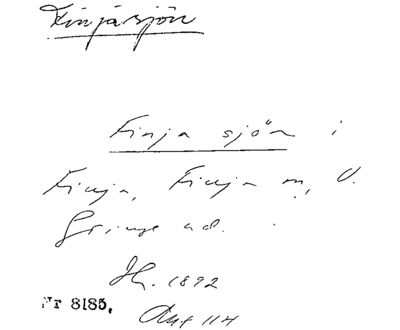 Finjasjön
Finja sjön i
Finja, Finja sn, V.
Göinge hd.
1892
Nr 8185.